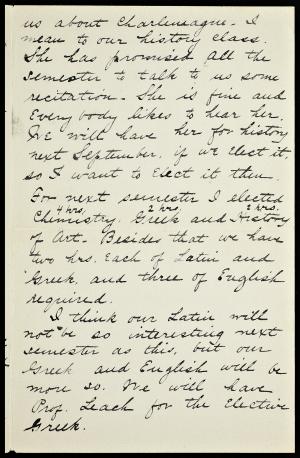 us about Charlemagne - I
mean to our history class.
She has promised all the
semester to talk to us some
recitation - She is fine and
Everybody likes to hear her.
We will have her for history
next September, if we Elect it,
so I want to Elect it then.
For next semester I elected
4 hrs. 2 hrs. 2 hrs.
Chemistry, Greek and History
of Art - Besides that we have
two hrs. Each of Latin and
Greek, and three of English
required.
I think our Latin will
not be so interesting next
semester as this, but our
Greek and English will be
more so. We will have
Prof. Leach for the Elective
Greek.